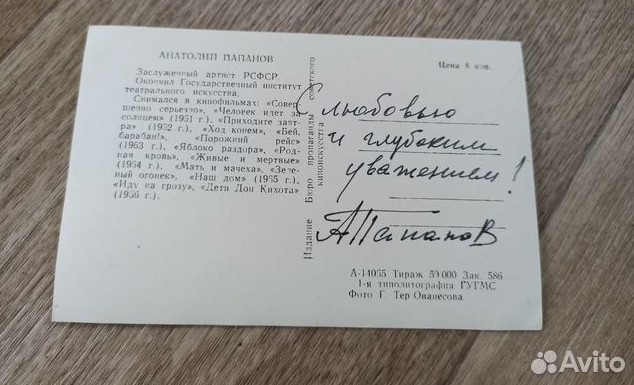 АНАТОЛИЙ ПАПАНОВ
Заслуженный артист РСФСР.
Окончил Государственный институт
театрального искусства.
Снимался в кинофильмах: «Совер-
шенно серьезно», «Человек идет за
солнцем» (1961 г.), «Приходите завт-
ра» (1962 г.), «Ход конем», «Бей,
барабан!», «Порожний рейс»
(1963 г.), «Яблоко раздора», «Род-
ная кровь», «Живые и мертвые»
(1964 г.), «Мать и мачеха», «Зеле-
ный огонек», «Наш дом» (1965 г.),
«Иду на грозу», «Дети Дон Кихота»
(1966 г.).
Издание Бюро пропаганды советского
киноискусства
Цена 8 коп.
С любовью
и глубоким
уважением!
АПапанов
А-14055 Тираж 50 000 Зак. 586
1-я типолитография ГУГМС
Фото Г. Тер Ованесова
Avito